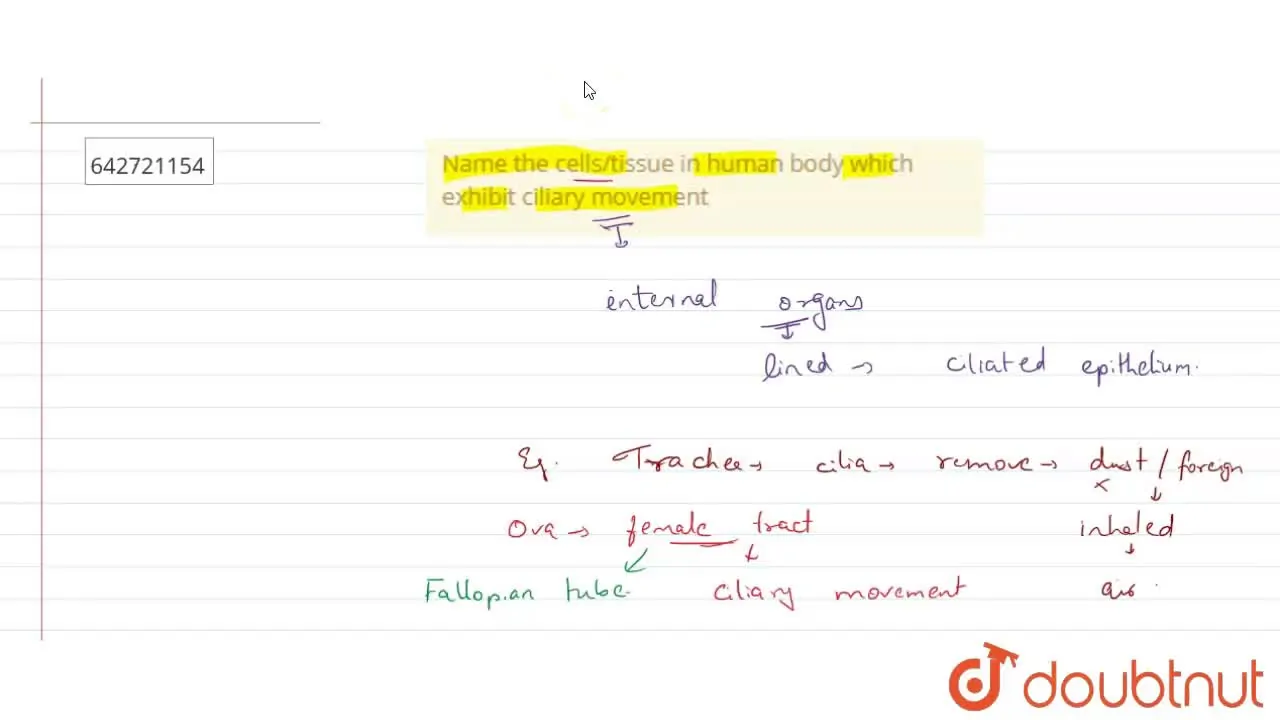 642721154
Name the cells/tissue in human body which
exhibit ciliary movement
internal organs
lined → ciliated epithelium.
Eg. Trachee → cilia → remove → dust / foreign
Ova → female tract inhaled
Fallopian tube. ciliary movement air
doubtnut